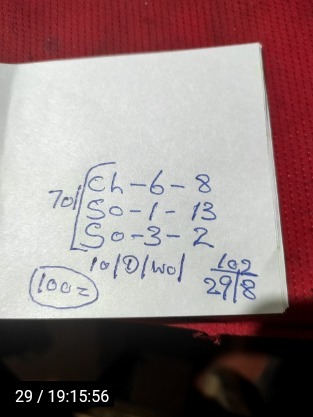 Ch - 6 - 8
70/ So - 1 - 13
So - 3 - 2
10/D/wo/ 102
100= 29/8
29 / 19:15:56